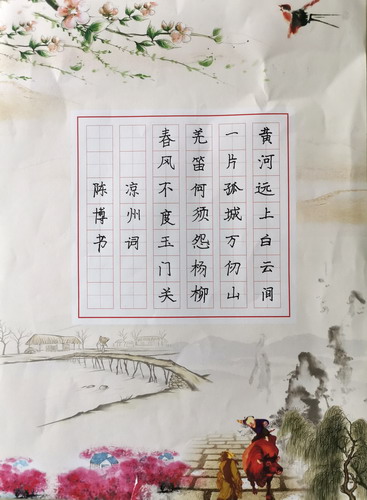 黄河远上白云间
一片孤城万仞山
羌笛何须怨杨柳
春风不度玉门关
凉州词
陈博书